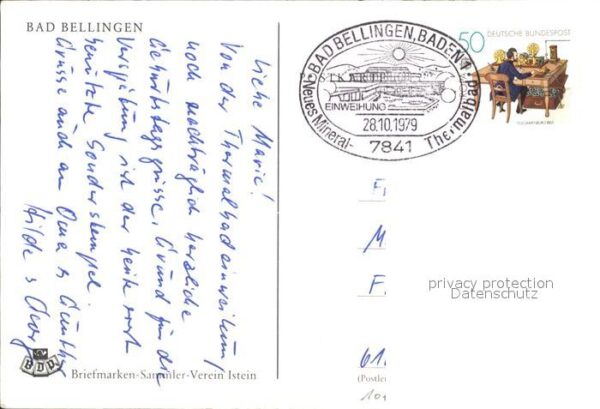 BAD BELLINGEN
Liebe Marie!
Von der Thermalbadeinweihung
noch nachträglich herzliche
Geburtstagsgrüsse. Grund für die
Verspätung ist der heute erst
benützte Sonderstempel.
Grüsse auch an Oma & Günther
Hilde & Georg
BDPh
Briefmarken-Sammler-Verein Istein
BAD BELLINGEN, BADEN 1
EINWEIHUNG
28.10.1979
7841
Neues Mineral-Thermalbad
50
DEUTSCHE BUNDESPOST
F
M
F
61
(Postle
privacy protection
Datenschutz